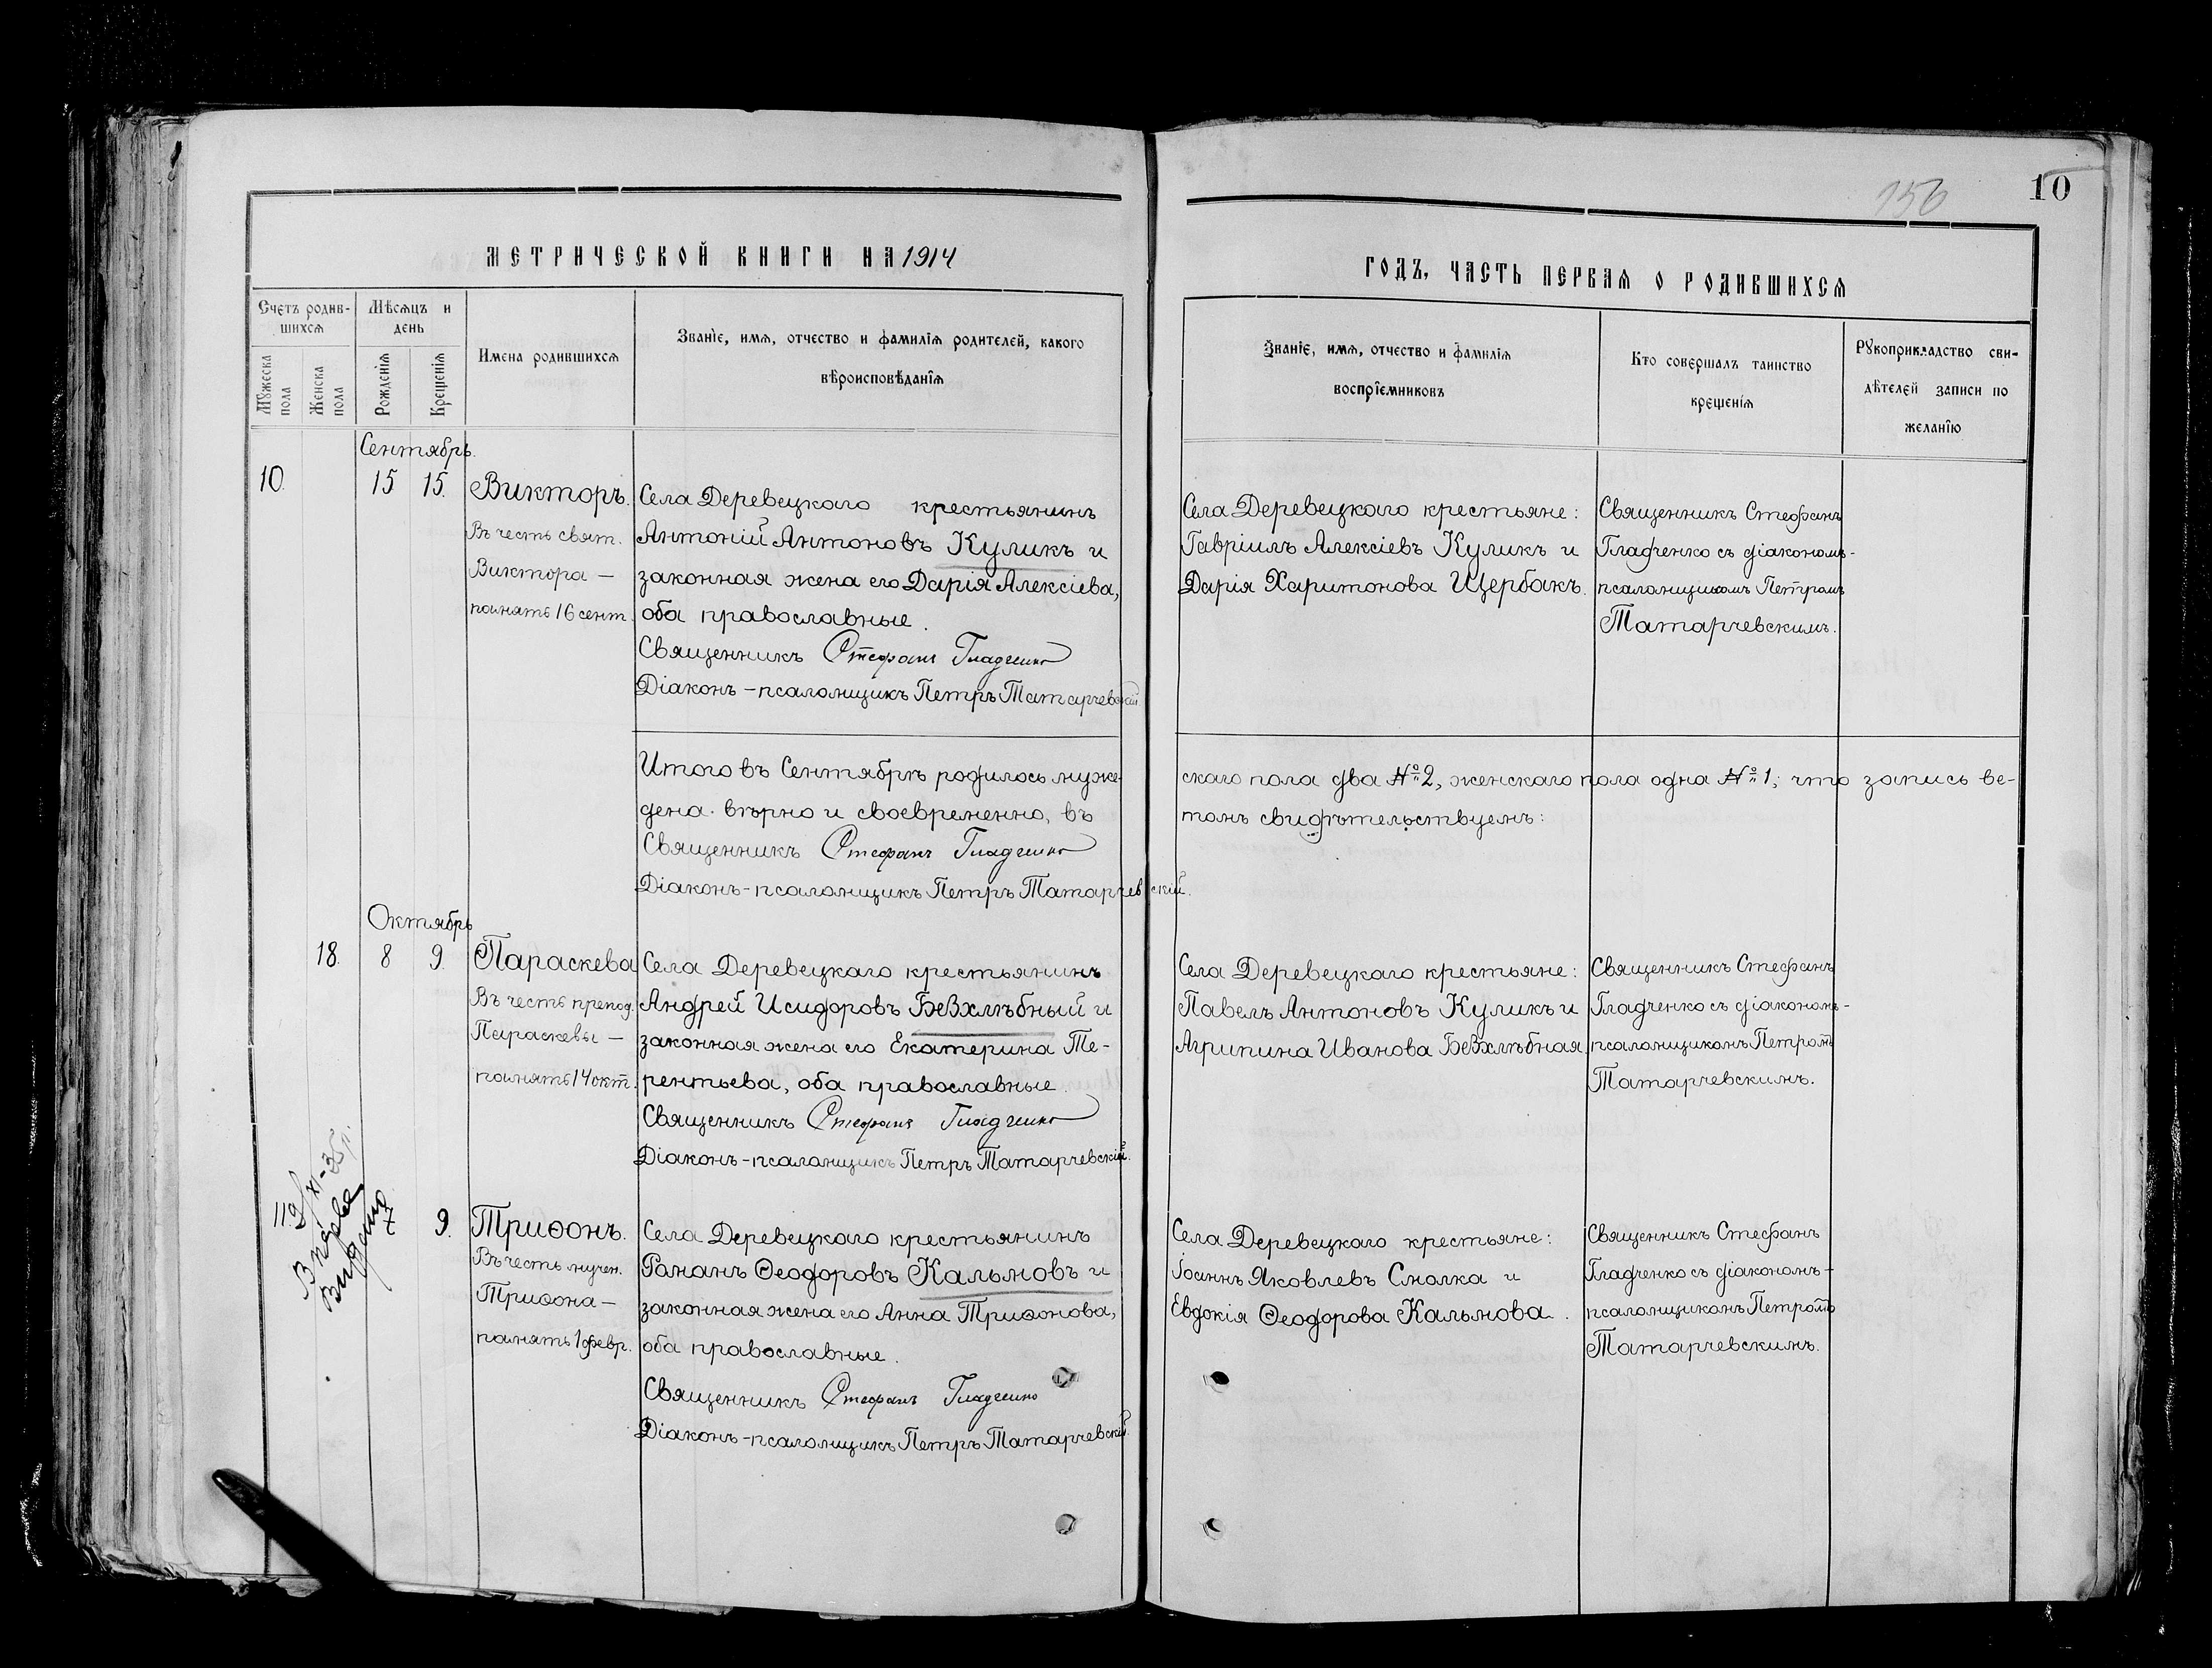 156
10
МЕТРИЧЕСКОЙ КНИГИ НА 1914
ГОДЪ, ЧАСТЬ ПЕРВАЯ О РОДИВШИХСЯ
Счетъ родив-
шихся
Мѣсяцъ и
день
Мужеска
пола
Женска
пола
Рожденія
Крещенія
Имена родившихся
Званіе, имя, отчество и фамилія родителей, какого
вѣроисповѣданія
Званіе, имя, отчество и фамилія
воспріемниковъ
Кто совершалъ таинство
крещенія
Рукоприкладство сви-
дѣтелей записи по
желанію
Сентябрь.
10.
15
15.
Викторъ.
Въ честь свят.
Виктора —
память 16 сент.
Села Деревецкаго крестьянинъ
Антоній Антоновъ Куликъ и
законная жена его Дарія Алексіева,
оба православные.
Священникъ Стефанъ Гладченко
Діаконъ-псаломщикъ Петръ Татарчевскій
Села Деревецкаго крестьяне:
Гавріилъ Алексіевъ Куликъ и
Дарія Харитонова Щербакъ.
Священникъ Стефанъ
Гладченко съ діакономъ-
псаломщикомъ Петромъ
Татарчевскимъ.
Итого въ Сентябрѣ родилось муже-
скаго пола два №2, женскаго пола одна №1; что запись ве-
дена вѣрно и своевременно, въ
томъ свидѣтельствуемъ:
Священникъ Стефанъ Гладченко
Діаконъ-псаломщикъ Петръ Татарчевскій.
Октябрь
18.
8
9.
Параскева
Въ честь препод.
Параскевы —
память 14 окт.
Села Деревецкаго крестьянинъ
Андрей Исидоровъ Безхлѣбный и
законная жена его Екатерина Те-
рентьева, оба православные.
Священникъ Стефанъ Гладченко
Діаконъ-псаломщикъ Петръ Татарчевскій.
Села Деревецкаго крестьяне:
Павелъ Антоновъ Куликъ и
Агрипина Иванова Безхлѣбная.
Священникъ Стефанъ
Гладченко съ діакономъ-
псаломщикомъ Петромъ
Татарчевскимъ.
9.
Триѳонъ.
Въ честь мучен.
Триѳона —
память 1 февр.
Села Деревецкаго крестьянинъ
Романъ Ѳеодоровъ Кальмовъ и
законная жена его Анна Триѳонова,
оба православные.
Священникъ Стефанъ Гладченко
Діаконъ-псаломщикъ Петръ Татарчевскій.
Села Деревецкаго крестьяне:
Іоаннъ Яковлевъ Смолка и
Евдокія Ѳеодорова Кальмова.
Священникъ Стефанъ
Гладченко съ діакономъ-
псаломщикомъ Петромъ
Татарчевскимъ.